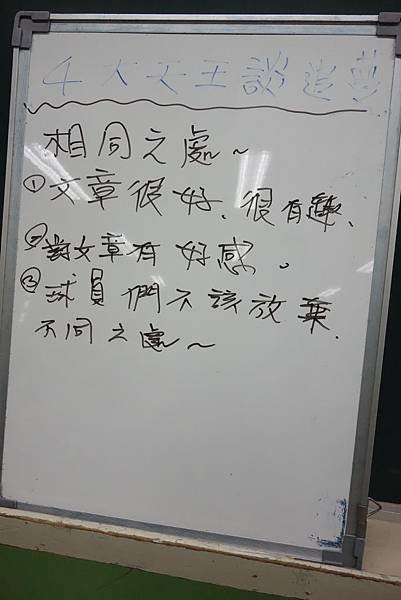 4大天王談追夢
相同之處~
①文章很好、很有趣、
②對文章有好感。
③球員們不該放棄.
不同之處~